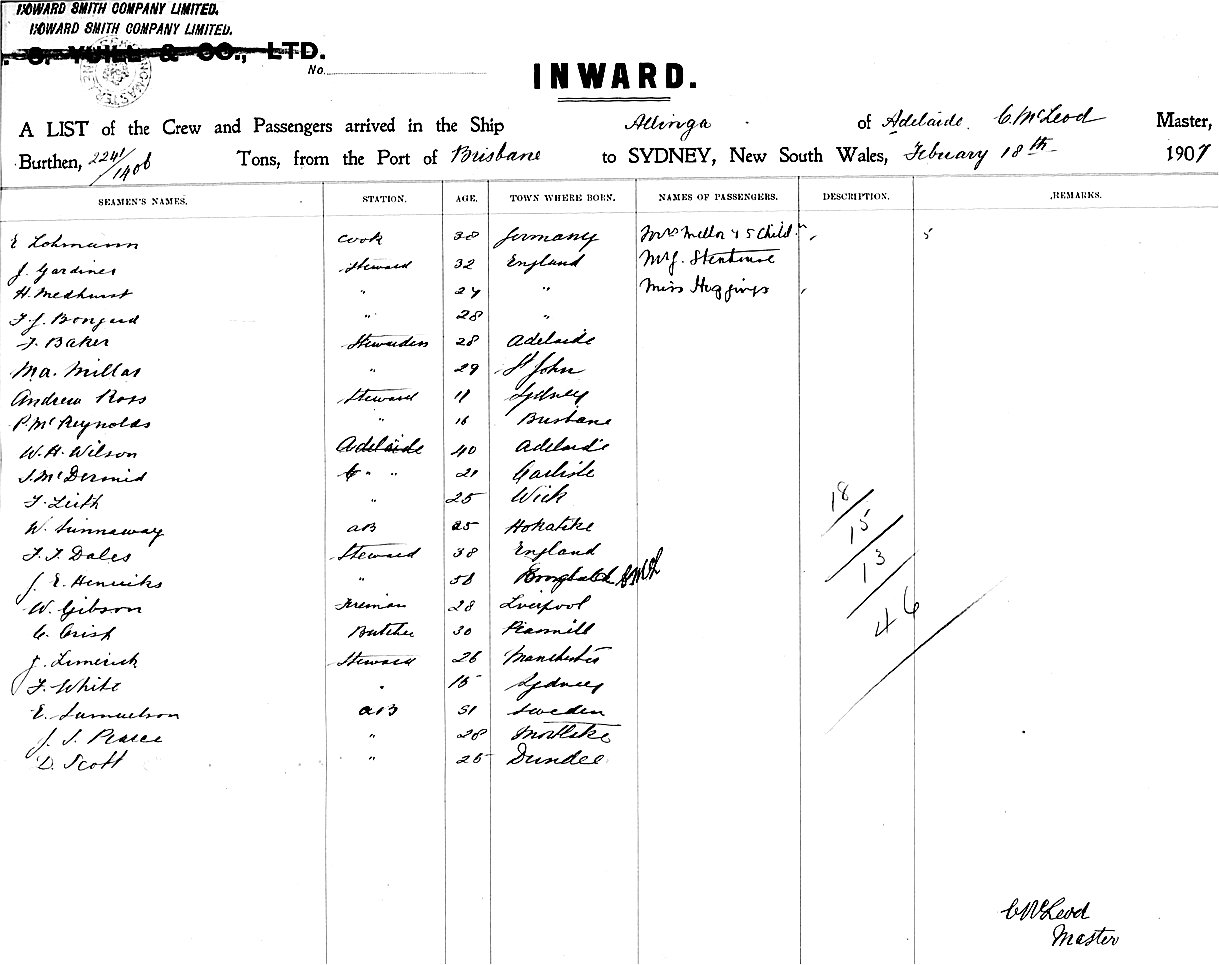 HOWARD SMITH COMPANY LIMITED.
HOWARD SMITH COMPANY LIMITED.
. C. YUILL & CO., LTD.
No.
INWARD.
A LIST of the Crew and Passengers arrived in the Ship Allinga of Adelaide. C. McLeod Master,
Burthen, 2241/1406 Tons, from the Port of Brisbane to SYDNEY, New South Wales, February 18th 1907
SEAMEN'S NAMES. STATION. AGE. TOWN WHERE BORN. NAMES OF PASSENGERS. DESCRIPTION. REMARKS.
E Lohmann cook 38 Germany Mrs Mellor & 5 Childn 5
J. Gardiner Steward 32 England Mr J. Stenhouse
H. Medhurst " 24 " Miss Huggings
F. J. " 28 "
F. Baker Stewardess 28 Adelaide
Ma. Millar " 29 St John
Andrew Ross Steward Sydney
P. McReynolds " 16 Brisbane
W. H. Wilson Adelaide 40 Adelaide
J. McDermid " " 21 Carlisle
F. Leith " 25 Wick
W. Sunnaway AB 25 Hokatike
F. F. Dales Steward 38 England
J. E. Henricks " 58 CMcL
W. Gibson Fireman 28 Liverpool
C. Crisp Butcher 30
J. Limerick Steward 26 Manchester
F. White " 15 Sydney
E. Samuelson AB 51 Sweden
J. S. Pearce " 28 Mortlake
D. Scott " 25 Dundee
18
15
13
46
C McLeod
Master